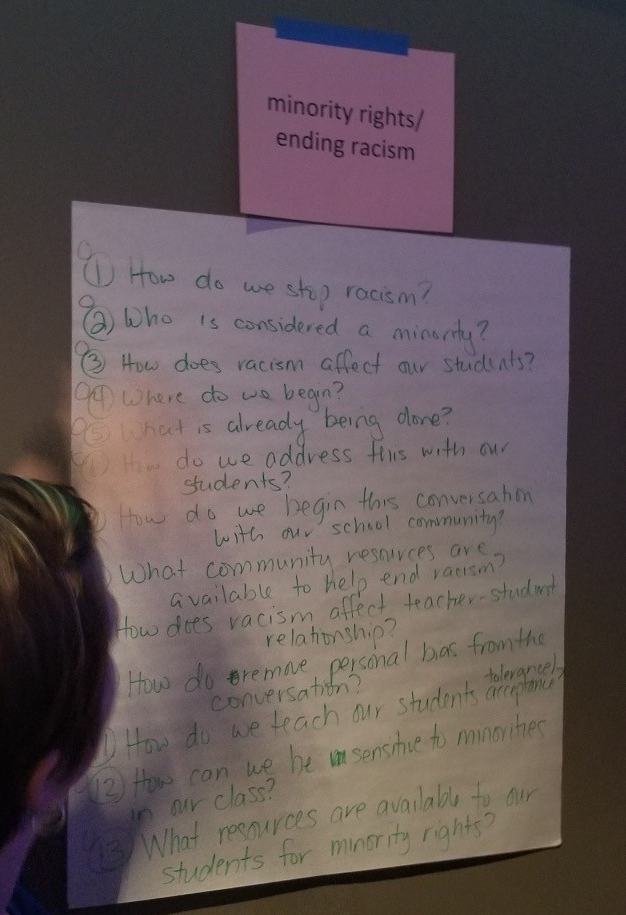 minority rights/
ending racism
① How do we stop racism?
② Who is considered a minority?
③ How does racism affect our students?
④ Where do we begin?
⑤ What is already being done?
How do we address this with our
students?
How do we begin this conversation
with our school community?
What community resources are
available to help end racism?
How does racism affect teacher-student
relationship?
How do remove personal bias from the
conversation?
How do we teach our students tolerance/
acceptance?
⑫ How can we be sensitive to minorities
in our class?
⑬ What resources are available to our
students for minority rights?